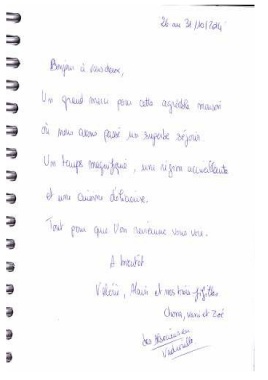 26 au 31/10/2014
Bonjour à vous deux,
Un grand merci pour cette agréable maison
où nous avons passé un superbe séjour.
Un temps magnifique, une région accueillante
et une cuisine délicieuse.
Tout pour que l'on revienne vous voir.
A bientôt
Valérie, Alain et nos
Chora, et Zoé